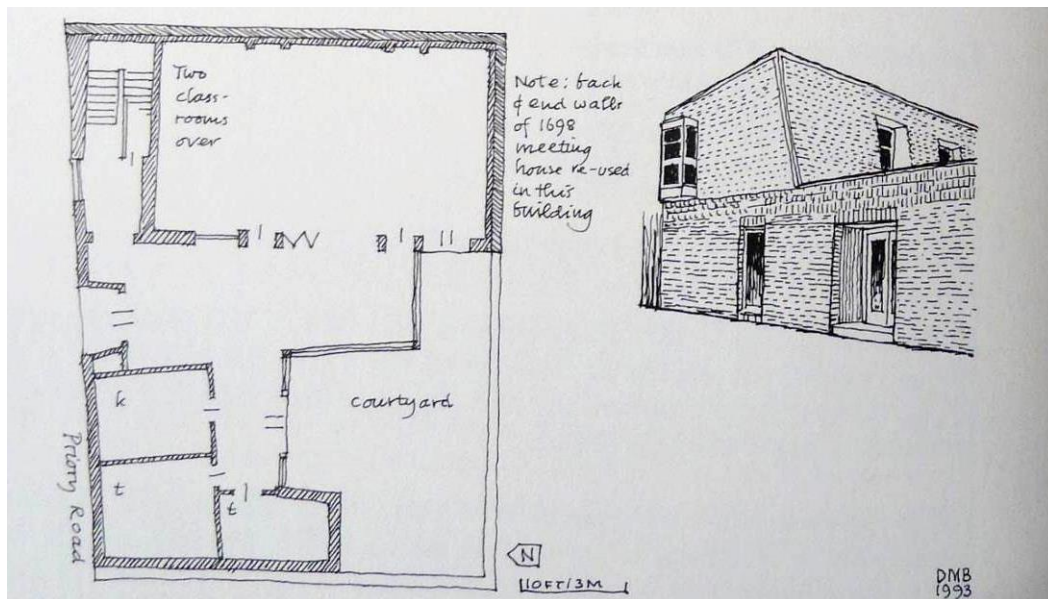 Two
class-
rooms
over
Note: back
& end walls
of 1698
meeting
house re-used
in this
building
courtyard
k
t
t
Priory Road
N
10FT/3M
DMB
1993